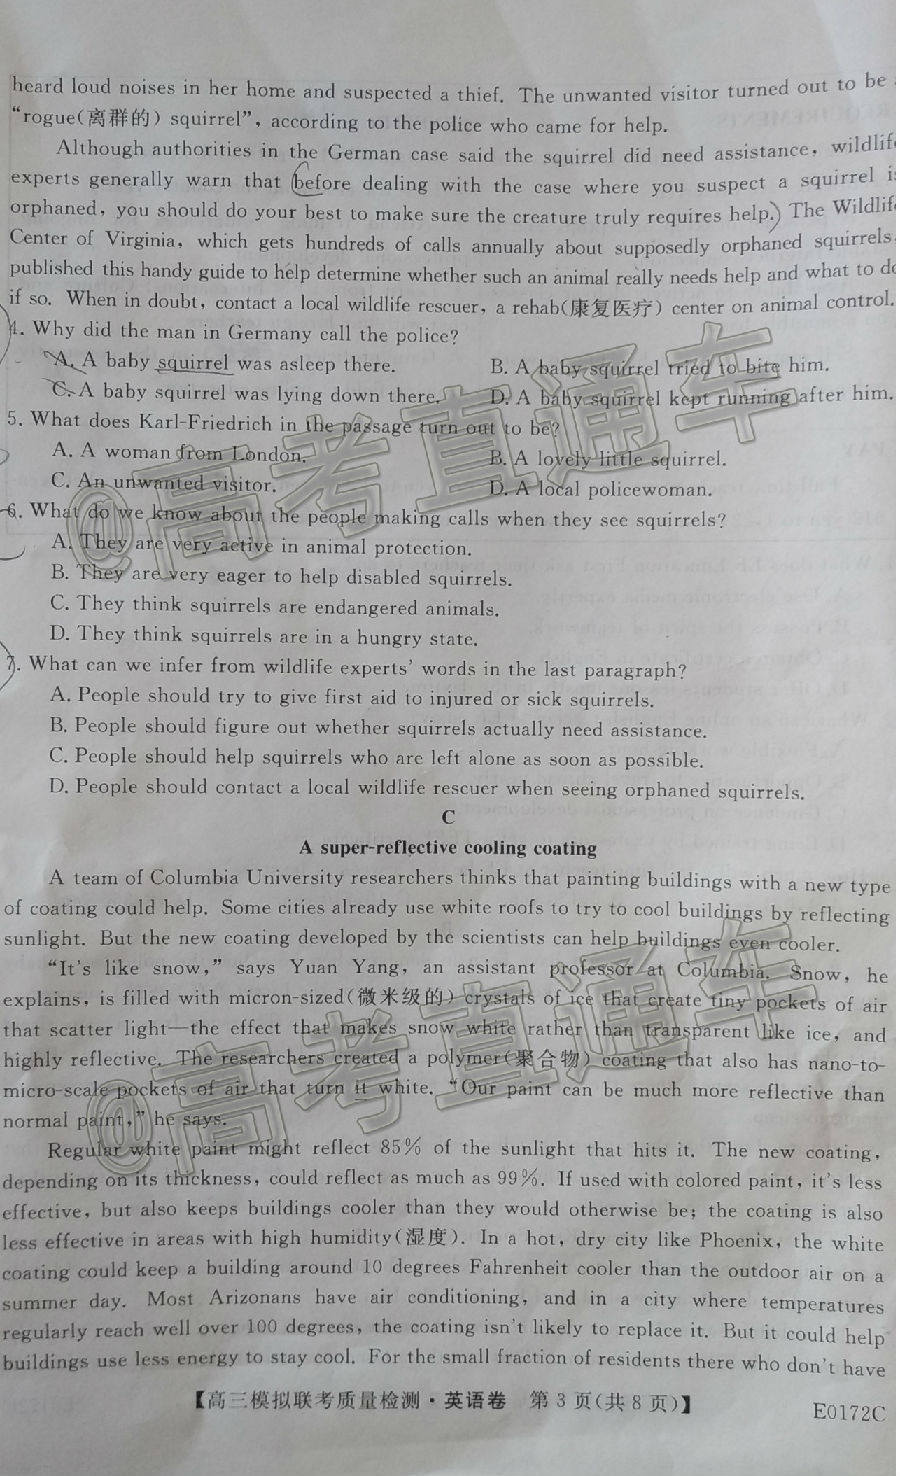 heard loud noises in her home and suspected a thief. The unwanted visitor turned out to be
“rogue(离群的) squirrel”, according to the police who came for help.
Although authorities in the German case said the squirrel did need assistance, wildlife
experts generally warn that before dealing with the case where you suspect a squirrel is
orphaned, you should do your best to make sure the creature truly requires help. The Wildlife
Center of Virginia, which gets hundreds of calls annually about supposedly orphaned squirrels,
published this handy guide to help determine whether such an animal really needs help and what to do
if so. When in doubt, contact a local wildlife rescuer, a rehab(康复医疗) center on animal control.
4. Why did the man in Germany call the police?
A. A baby squirrel was asleep there. B. A baby squirrel tried to bite him.
C. A baby squirrel was lying down there. D. A baby squirrel kept running after him.
5. What does Karl-Friedrich in the passage turn out to be?
A. A woman from London. B. A lovely little squirrel.
C. An unwanted visitor. D. A local policewoman.
6. What do we know about the people making calls when they see squirrels?
A. They are very active in animal protection.
B. They are very eager to help disabled squirrels.
C. They think squirrels are endangered animals.
D. They think squirrels are in a hungry state.
7. What can we infer from wildlife experts' words in the last paragraph?
A. People should try to give first aid to injured or sick squirrels.
B. People should figure out whether squirrels actually need assistance.
C. People should help squirrels who are left alone as soon as possible.
D. People should contact a local wildlife rescuer when seeing orphaned squirrels.
C
A super-reflective cooling coating
A team of Columbia University researchers thinks that painting buildings with a new type
of coating could help. Some cities already use white roofs to try to cool buildings by reflecting
sunlight. But the new coating developed by the scientists can help buildings even cooler.
“It's like snow,” says Yuan Yang, an assistant professor at Columbia. Snow, he
explains, is filled with micron-sized(微米级的) crystals of ice that create tiny pockets of air
that scatter light—the effect that makes snow white rather than transparent like ice, and
highly reflective. The researchers created a polymer(聚合物) coating that also has nano-to-
micro-scale pockets of air that turn it white. “Our paint can be much more reflective than
normal paint,” he says.
Regular white paint might reflect 85% of the sunlight that hits it. The new coating,
depending on its thickness, could reflect as much as 99%. If used with colored paint, it's less
effective, but also keeps buildings cooler than they would otherwise be; the coating is also
less effective in areas with high humidity(湿度). In a hot, dry city like Phoenix, the white
coating could keep a building around 10 degrees Fahrenheit cooler than the outdoor air on a
summer day. Most Arizonans have air conditioning, and in a city where temperatures
regularly reach well over 100 degrees, the coating isn't likely to replace it. But it could help
buildings use less energy to stay cool. For the small fraction of residents there who don't have
【高三模拟联考质量检测·英语卷 第3页(共8页)】
E0172C
@高考直通车
@高考直通车